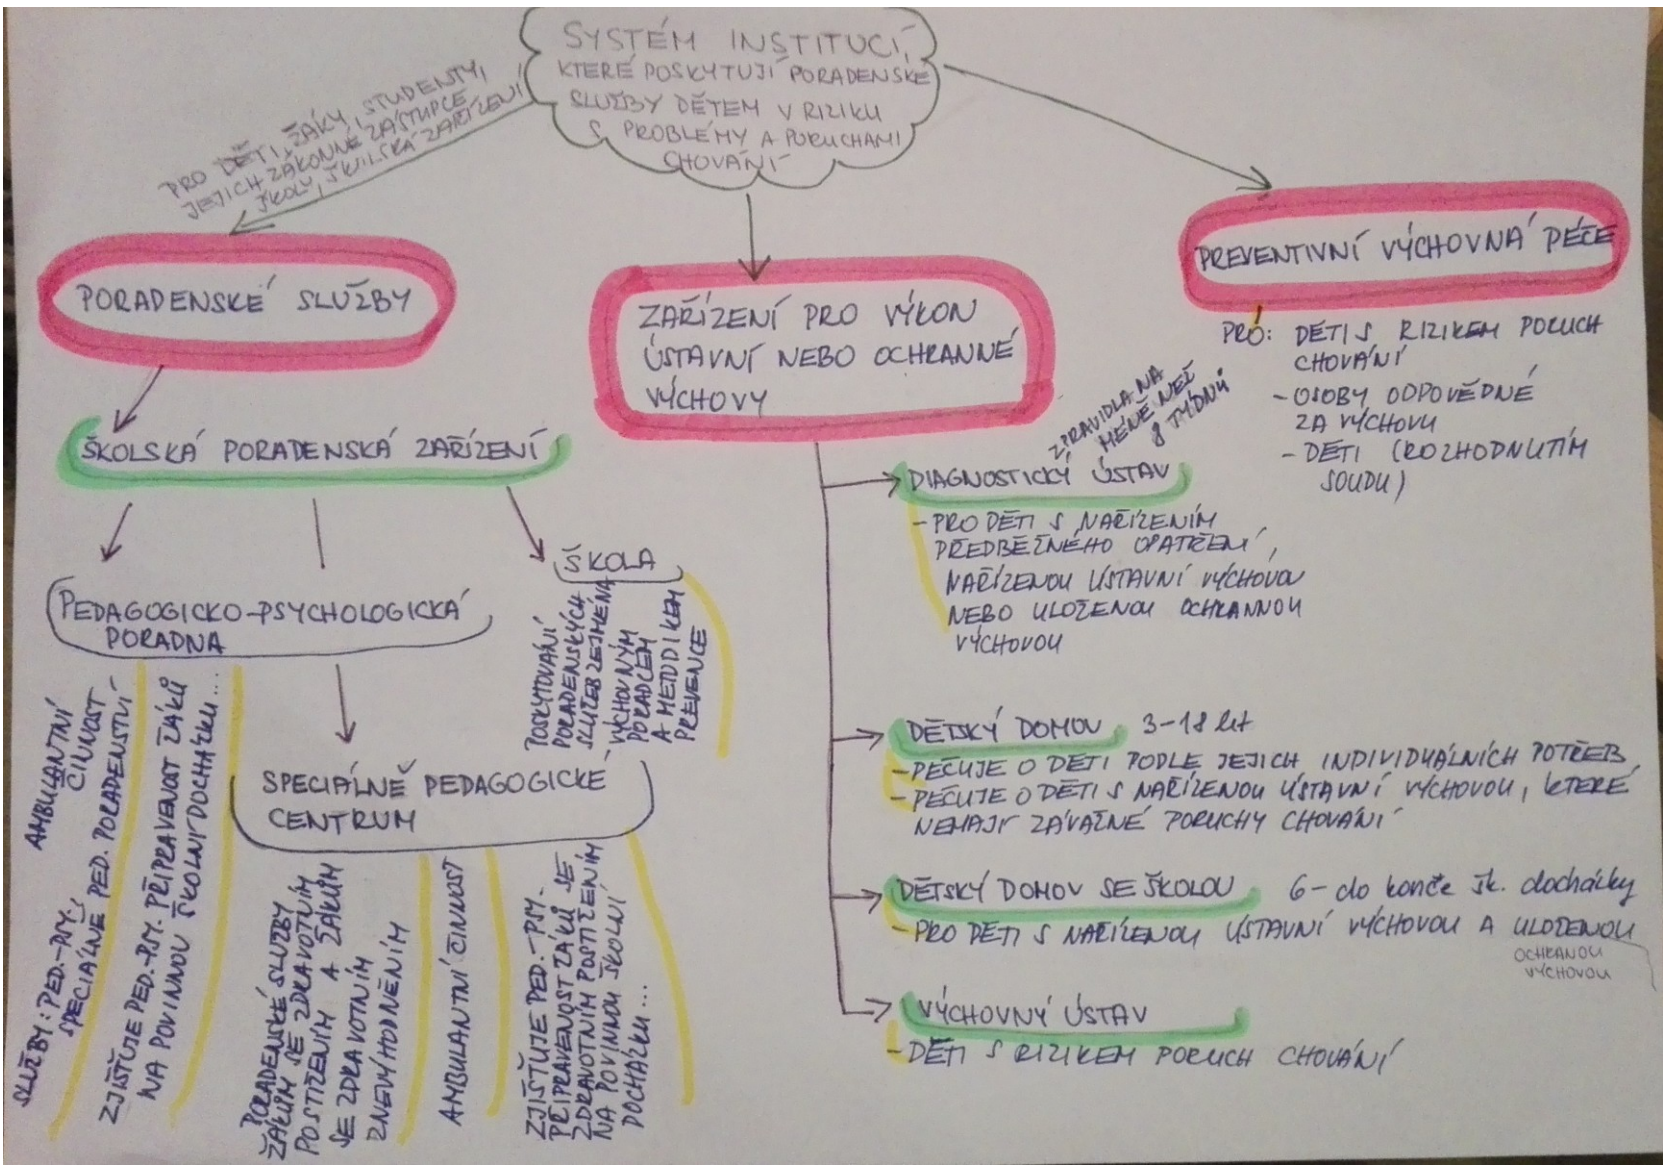 SYSTÉM INSTITUCÍ,
KTERÉ POSKYTUJÍ PORADENSKÉ
SLUŽBY DĚTEM V RIZIKU
S PROBLÉMY A PORUCHAMI
CHOVÁNÍ
PRO DĚTI, ŽÁKY, STUDENTY,
JEJICH ZÁKONNÉ ZÁSTUPCE,
ŠKOLY, ŠKOLSKÁ ZAŘÍZENÍ
PORADENSKÉ SLUŽBY
ŠKOLSKÁ PORADENSKÁ ZAŘÍZENÍ
PEDAGOGICKO-PSYCHOLOGICKÁ
PORADNA
AMBULANTNÍ
ČINNOST
SLUŽBY: PED.-PSY.,
SPECIÁLNĚ PED. PORADENSTVÍ
ZJIŠŤUJE PED.-PSY. PŘIPRAVENOST ŽÁKŮ
NA POVINNOU ŠKOLNÍ DOCHÁZKU...
SPECIÁLNĚ PEDAGOGICKÉ
CENTRUM
PORADENSKÉ SLUŽBY
ŽÁKŮM SE ZDRAVOTNÍM
POSTIŽENÍM A ŽÁKŮM
SE ZDRAVOTNÍM
ZNEVÝHODNĚNÍM
AMBULANTNÍ ČINNOST
ZJIŠŤUJE PED.-PSY.
PŘIPRAVENOST ŽÁKŮ SE
ZDRAVOTNÍM POSTIŽENÍM
NA POVINNOU ŠKOLNÍ
DOCHÁZKU...
ŠKOLA
POSKYTOVÁNÍ
PORADENSKÝCH
SLUŽEB ZEJMÉNA
VÝCHOVNÝM
PORADCEM
A METODIKEM
PREVENCE
ZAŘÍZENÍ PRO VÝKON
ÚSTAVNÍ NEBO OCHRANNÉ
VÝCHOVY
ZPRAVIDLA NA
MÉNĚ NEŽ
8 TÝDNŮ
DIAGNOSTICKÝ ÚSTAV
- PRO DĚTI S NAŘÍZENÍM
PŘEDBĚŽNÉHO OPATŘENÍ,
NAŘÍZENOU ÚSTAVNÍ VÝCHOVOU
NEBO ULOŽENOU OCHRANNOU
VÝCHOVOU
DĚTSKÝ DOMOV 3-18 let
- PEČUJE O DĚTI PODLE JEJICH INDIVIDUÁLNÍCH POTŘEB
- PEČUJE O DĚTI S NAŘÍZENOU ÚSTAVNÍ VÝCHOVOU, KTERÉ
NEMAJÍ ZÁVAŽNÉ PORUCHY CHOVÁNÍ
DĚTSKÝ DOMOV SE ŠKOLOU 6- do konče šk. docházky
- PRO DĚTI S NAŘÍZENOU ÚSTAVNÍ VÝCHOVOU A ULOŽENOU
OCHRANOU
VÝCHOVOU
VÝCHOVNÝ ÚSTAV
- DĚTI S RIZIKEM PORUCH CHOVÁNÍ
PREVENTIVNÍ VÝCHOVNÁ PÉČE
PRO: DĚTI S RIZIKEM PORUCH
CHOVÁNÍ
- OSOBY ODPOVĚDNÉ
ZA VÝCHOVU
- DĚTI (ROZHODNUTÍM
SOUDU)